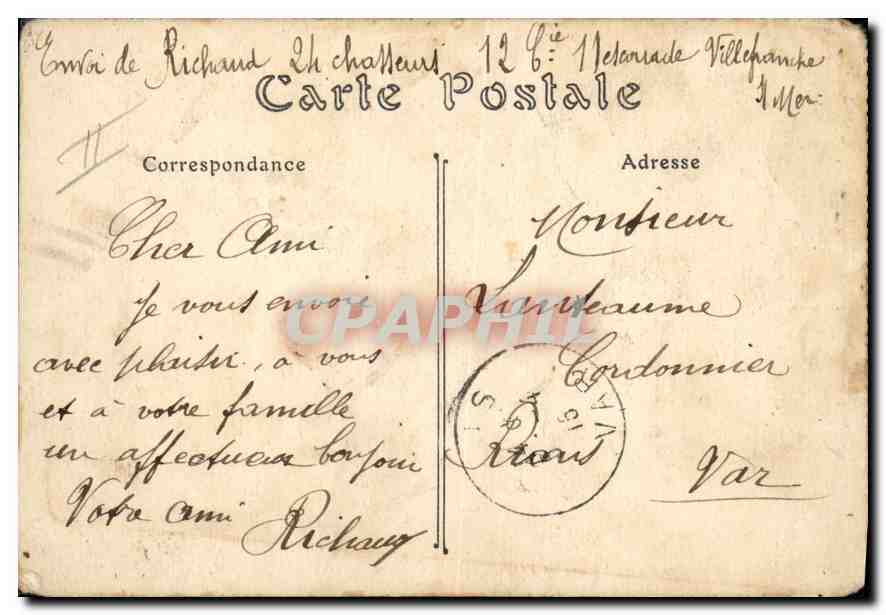 Envoi de Richaud 24 chasseurs 12 Cie 11 escouade Villefranche
s/ Mer
Carte Postale
II
Correspondance
Cher Ami
Je vous envoie
avec plaisir, à vous
et à votre famille
un affectueux bonjour
Votre ami
Richaud
Adresse
Monsieur
Lieuteaume
Cordonnier
Rians
Var
CPAPHIL
VAR